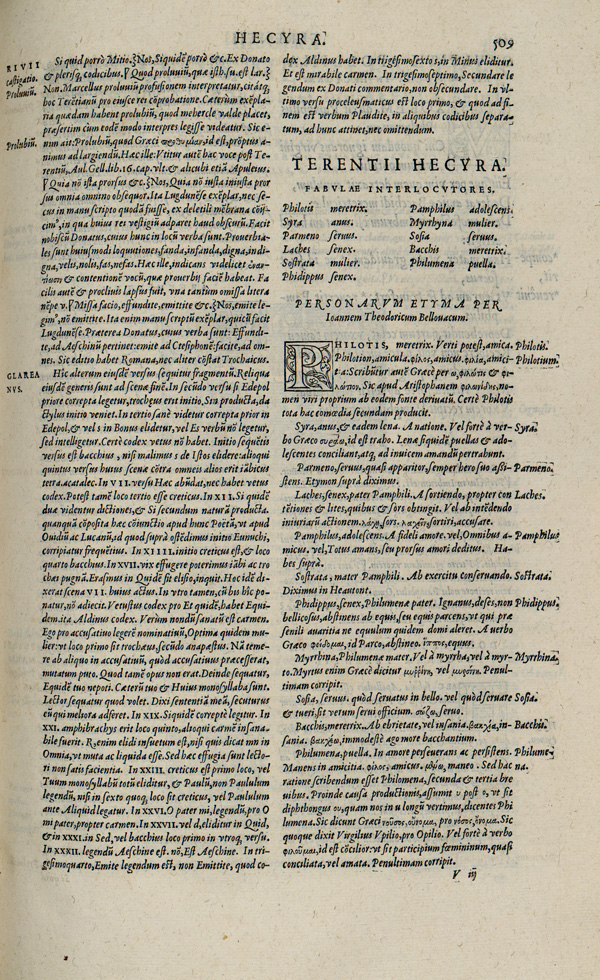 HECYRA.
509
RIVII
castigatio.
Prolouiũ.
Prolubiũ.
GLAREA
NVS.
Si quid porrò Mitio. ξNos, Siquidẽ porrò &c. Ex Donato
& plerisq, codicibus. ƒ Quod prolouiũ, quæ isthæc su. est lar. ξ
Non. Marcellus prolouiũ profusionem interpretatur, citátq,
hoc Terẽtianũ pro eiusce rei cõprobatione. Cæterum exẽpla-
ria quædam habent prolubiũ, quod mehercle valde placet,
præsertim cum eodẽ modo interpres legisse videatur. Sic e-
nim ait. Prolubiũ, quod Græci id est, prõptus a-
nimus ad largiendũ, Hac ille: Vtitur autẽ hac voce post Te-
rentiũ, Aul. Gell. lib. 16. cap. vlt. & alicubi etiã Apuleius.
ƒ Quia nõ ista prorsus &c. ξNos, Quia nõ iusta iniusta pror
sus omnia omnino obsequor. Ita Lugdunẽse exẽplar, nec se-
cus in manuscripto quodã fuisse, ex deletili mẽbrana cõii-
cim', in qua huius rei vestigiũ adparet haud obscurũ. Facit
nobiscũ Donatus, cuius hunc in locũ verba sunt. Prouerbia-
les sunt huiusmodi loquutiones, fanda, infanda, digna, indi-
gna, velis, nolis, fas, nefas. Hæc ille, indicans videlicet
& contentionẽ vocũ, quæ prouerbij faciẽ habeat. Fa-
cilis autẽ & procliuis lapsus fuit, vna tantùm omissa litera
nẽpe v. ƒ Missa facio, effundite, emittite &c. ξNos, emite le-
gim', nõ emittite. Ita enim manuscriptũ exẽplar, quicũ facit
Lugdunẽse. Præterea Donatus, cuius verba sunt: Effundi-
te, ad Aeschinũ pertinet: emite ad Ctesiphonẽ: facite, ad om-
nes. Sic editio habet Romana, nec aliter cõstat Trochaicus.
Hîc alterum eiusdẽ versus sequitur fragmentũ. Reliqua
eiusdẽ generis sunt ad scenæ finẽ. In secũdo versu si Edepol
priore correpta legetur, trochæus erit initio, Sin producta, da-
ctylus initio veniet. In tertio sanè videtur correpta prior in
Edepol, & vel s in Bonus elidetur, vel Es verbũ nõ legetur,
sed intelligetur. Certè codex vetus nõ habet. Initio sequẽtis
versus est bacchius, nisi malimus s de Istos elidere: alioqui
quintus versus huius scenæ cõtra omneis alios erit iãbicus
tetra. acatalec. In VII. versu Hac abũdat, nec habet vetus
codex. Potest tamẽ loco tertio esse creticus. In XII. Si quidẽ
duæ videntur dictiones, & Si secundum naturã producta.
quanquã cõposita hæc cõiunctio apud hunc Poetã, vt apud
Ouidiũ ac Lucanũ, id quod suprà ostẽdimus initio Eunuchi,
corripiatur frequẽtius. In XIIII. initio creticus est, & loco
quarto bacchius. In XVII. vix effugere poterimus iãbi ac tro
chæi pugnã. Erasmus in Quidẽ sit elisio, inquit. Hoc idẽ di-
xerat scena VII. huius actus. In vtro tamen, cũ bis hîc po-
natur, nõ adiecit. Vetustus codex pro Et quidẽ, habet Equi-
dem. ita Aldinus codex. Verùm nondũ sanatũ est carmen.
Ego pro accusatiuo legerẽ nominatiuũ, Optima quidem mu-
lier: vt loco primo sit trochæus, secũdo anapæstus. Nã teme-
re ab aliquo in accusatiuũ, quòd accusatiuus præcesserat,
mutatum puto. Quod tamẽ opus non erat. Deinde sequatur,
Equidẽ tuo nepoti. Cæterũ tuo & Huius monosyllaba sunt.
Lector sequatur quod volet. Dixi sententiã meã, secuturus
eũ qui meliora adferet. In XIX. Siquidẽ correptè legitur. In
XXI. amphibrachys erit loco quinto, alioqui carmẽ insana-
bile fuerit. R enim elidi insuetum est, nisi quis dicat mn in
Omnia, vt muta ac liquida esse. Sed hæc effugia sunt lecto-
ri non satis facientia. In XXIII. creticus est primo loco, vel
Tuum monosyllabũ totũ eliditur, & Paulũ, non Paululum
legendũ, nisi in sexto quoq, loco sit creticus, vel Paululum
ante Aliquid legatur. In XXVI. O pater mi, legendũ, pro O
mi pater, propter carmen. In XXVII. vel d, eliditur in Quid,
& in XXXI. in Sed, vel bacchius loco primo in vtroq, versu.
In XXXII. legendũ Aeschine est. nõ, Est Aeschine. In tri-
gesimoquarto, Emite legendum est, non Emittite, quod co-
dex Aldinus habet. In trigesimosexto s, in Minus eliditur.
Et est mirabile carmen. In trigesimoseptimo, Secundare le
gendum ex Donati commentario, non obsecundare. In vl-
timo versu proceleusmaticus est loco primo, & quod ad fi-
nem est verbum Plaudite, in aliquibus codicibus separa-
tum, ad hunc attinet, nec omittendum.
TERENTII HECYRA.
FABVLAE INTERLOCVTORES.
Philotis meretrix. Pamphilus adolescens.
Syra anus. Myrrhyna mulier.
Parmeno seruus. Sosia seruus.
Laches senex. Bacchis meretrix.
Sostrata mulier. Philumena puella.
Phidippus senex.
PERSONARVM ETYMA PER
Ioannem Theodoricum Bellouacum.
PHILOTIS, meretrix. Verti potest, amica. Philotis.
Philotion, amicula. φίλος, amicus. φιλία, amici- Philotium.
tia: Scribũtur autẽ Græcè per ω φιλώτις & φι-
λώτιον. Sic apud Aristophanem φιλωνίδης, no-
men viri proprium ab eodem fonte deriuatũ. Certè Philotis
tota hac comœdia secundam producit.
Syra, anus, & eadem lena. A natione. Vel fortè à ver- Syra.
bo Græco συρω, id est traho. Lenæ siquidẽ puellas & ado-
lescentes conciliant, atq, ad inuicem amandũ pertrahunt.
Parmeno, seruus, quasi apparitor, semper hero suo assi- Parmeno
stens. Etymon suprà diximus.
Laches, senex, pater Pamphili. A sortiendo, propter con Laches
tẽtiones & lites, quibus & sors obtingit. Vel ab intẽdendo
iniuriarũ actionem. λάχη, sors. λαχεῖν, sortiri, accusare.
Pamphilus, adolescens. A fideli amore. vel, Omnibus a- Pamphilus
micus. vel, Totus amans, seu prorsus amori deditus. Ha-
bes suprà.
Sostrata, mater Pamphili. Ab exercitu conseruando. Sostrata
Diximus in Heautont.
Phidippus, senex, Philumenæ pater. Ignauus, deses, non Phidippus
bellicosus, abstinens ab equis, seu equis parcens, vt qui præ
senili auaritia ne equulum quidem domi aleret. A verbo
Græco φείδομαι, id Parco, abstineo. ἵππος, equus.
Myrrhina, Philumenæ mater. Vel à myrrha, vel à myr- Myrrhina
to. Myrtus enim Græcè dicitur μυῤῥίνη, vel μυρσίνη. Penul-
timam corripit.
Sosia, seruus. quòd seruatus in bello. vel quòd seruare Sosia.
& tueri sit verum serui officium. σώζω, seruo.
Bacchis, meretrix. Ab ebrietate, vel insania. βακχία, in- Bacchis.
sania. βακχέω, immodestè ago more bacchantium.
Philumena, puella. In amore perseuerans ac persistens. Philume-
Manens in amicitia. φίλος, amicus. μένω, maneo. Sed hac na.
ratione scribendum esset Philomena, secunda & tertia bre
uibus. Proinde causa productionis, assumit υ post ο, vt sit
diphthongus ου, quam nos in u longũ vertimus, dicentes Phi
lumena. Sic dicunt Græci νοῦσος, οὔνομα, pro νόσος, ὄνομα. Sic
quoque dixit Virgilius Vpilio, pro Opilio. Vel fortè à verbo
φιλοῦμαι, id est cõcilior: vt sit participium fœmininum, quasi
conciliata, vel amata. Penultimam corripit.
V iij